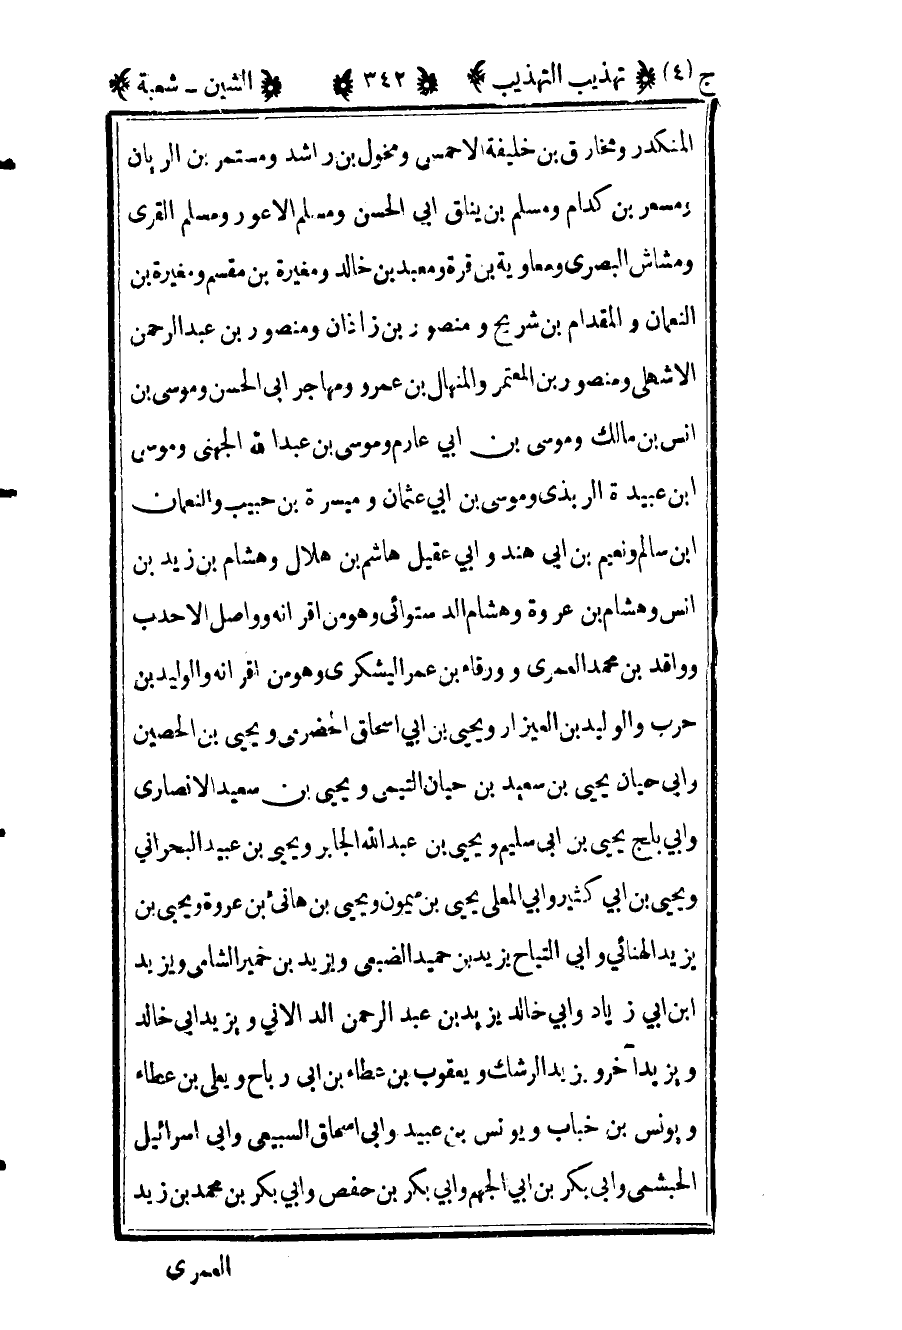 ج (٤) تهذيب التهذيب ٣٤٢ الشين - شعبة
المنكدر ومخارق بن خليفة الاحمسى ومخول بن راشد ومستمر بن الريان
ومسعر بن كدام ومسلم بن يناق ابي الحسن ومسلم الاعور ومسلم القرى
ومشاش البصرى ومعاوية بن قرة ومعبد بن خالد ومغيرة بن مقسم ومغيرة بن
النعمان و المقدام بن شريح و منصور بن زاذان ومنصور بن عبدالرحمن
الاشهلى ومنصور بن المعتمر والمنهال بن عمرو ومهاجر ابى الحسن وموسى بن
انس بن مالك وموسى بن ابي عارم وموسى بن عبدالله الجهنى وموسى
ابن عبيدة الربذى وموسى بن ابي عثمان و ميسرة بن حبيب والنعمان
ابن سالم ونعيم بن ابى هند و ابي عقيل هاشم بن هلال وهشام بن زيد بن
انس وهشام بن عروة وهشام الدستوائى وهو من اقرانه وواصل الاحدب
وواقد بن محمد العمرى و ورقاء بن عمر اليشكرى وهو من اقرانه والوليد بن
حرب والوليد بن العيزار ويحيى بن ابي اسحاق الحضرمى ويحيى بن الحصين
وابى حيان يحيى بن سعيد بن حيان التيمى و يحيى بن سعيد الانصارى
وابي بلج يحيى بن ابى سليم ويحيى بن عبدالله الجابر ويحيى بن عبيد البحراني
ويحيى بن ابي كثير وابي المعلى يحيى بن ميمون ويحيى بن هانئ بن عروة ويحيى بن
يزيد الهنائي و ابى التياح يزيد بن حميد الضبعى ويزيد بن خمير الشامى ويزيد
ابن ابي زياد وابي خالد يزيد بن عبد الرحمن الدالاني و يزيد ابى خالد
و يزيد آخر ويزيد الرشك و يعقوب بن عطاء بن ابى رباح ويعلى بن عطاء
و يونس بن خباب و يونس بن عبيد وابى اسحاق السبيعى وابى اسرائيل
الجشمى وابى بكر بن ابي الجهم وابي بكر بن حفص وابي بكر بن محمد بن زيد
العمرى